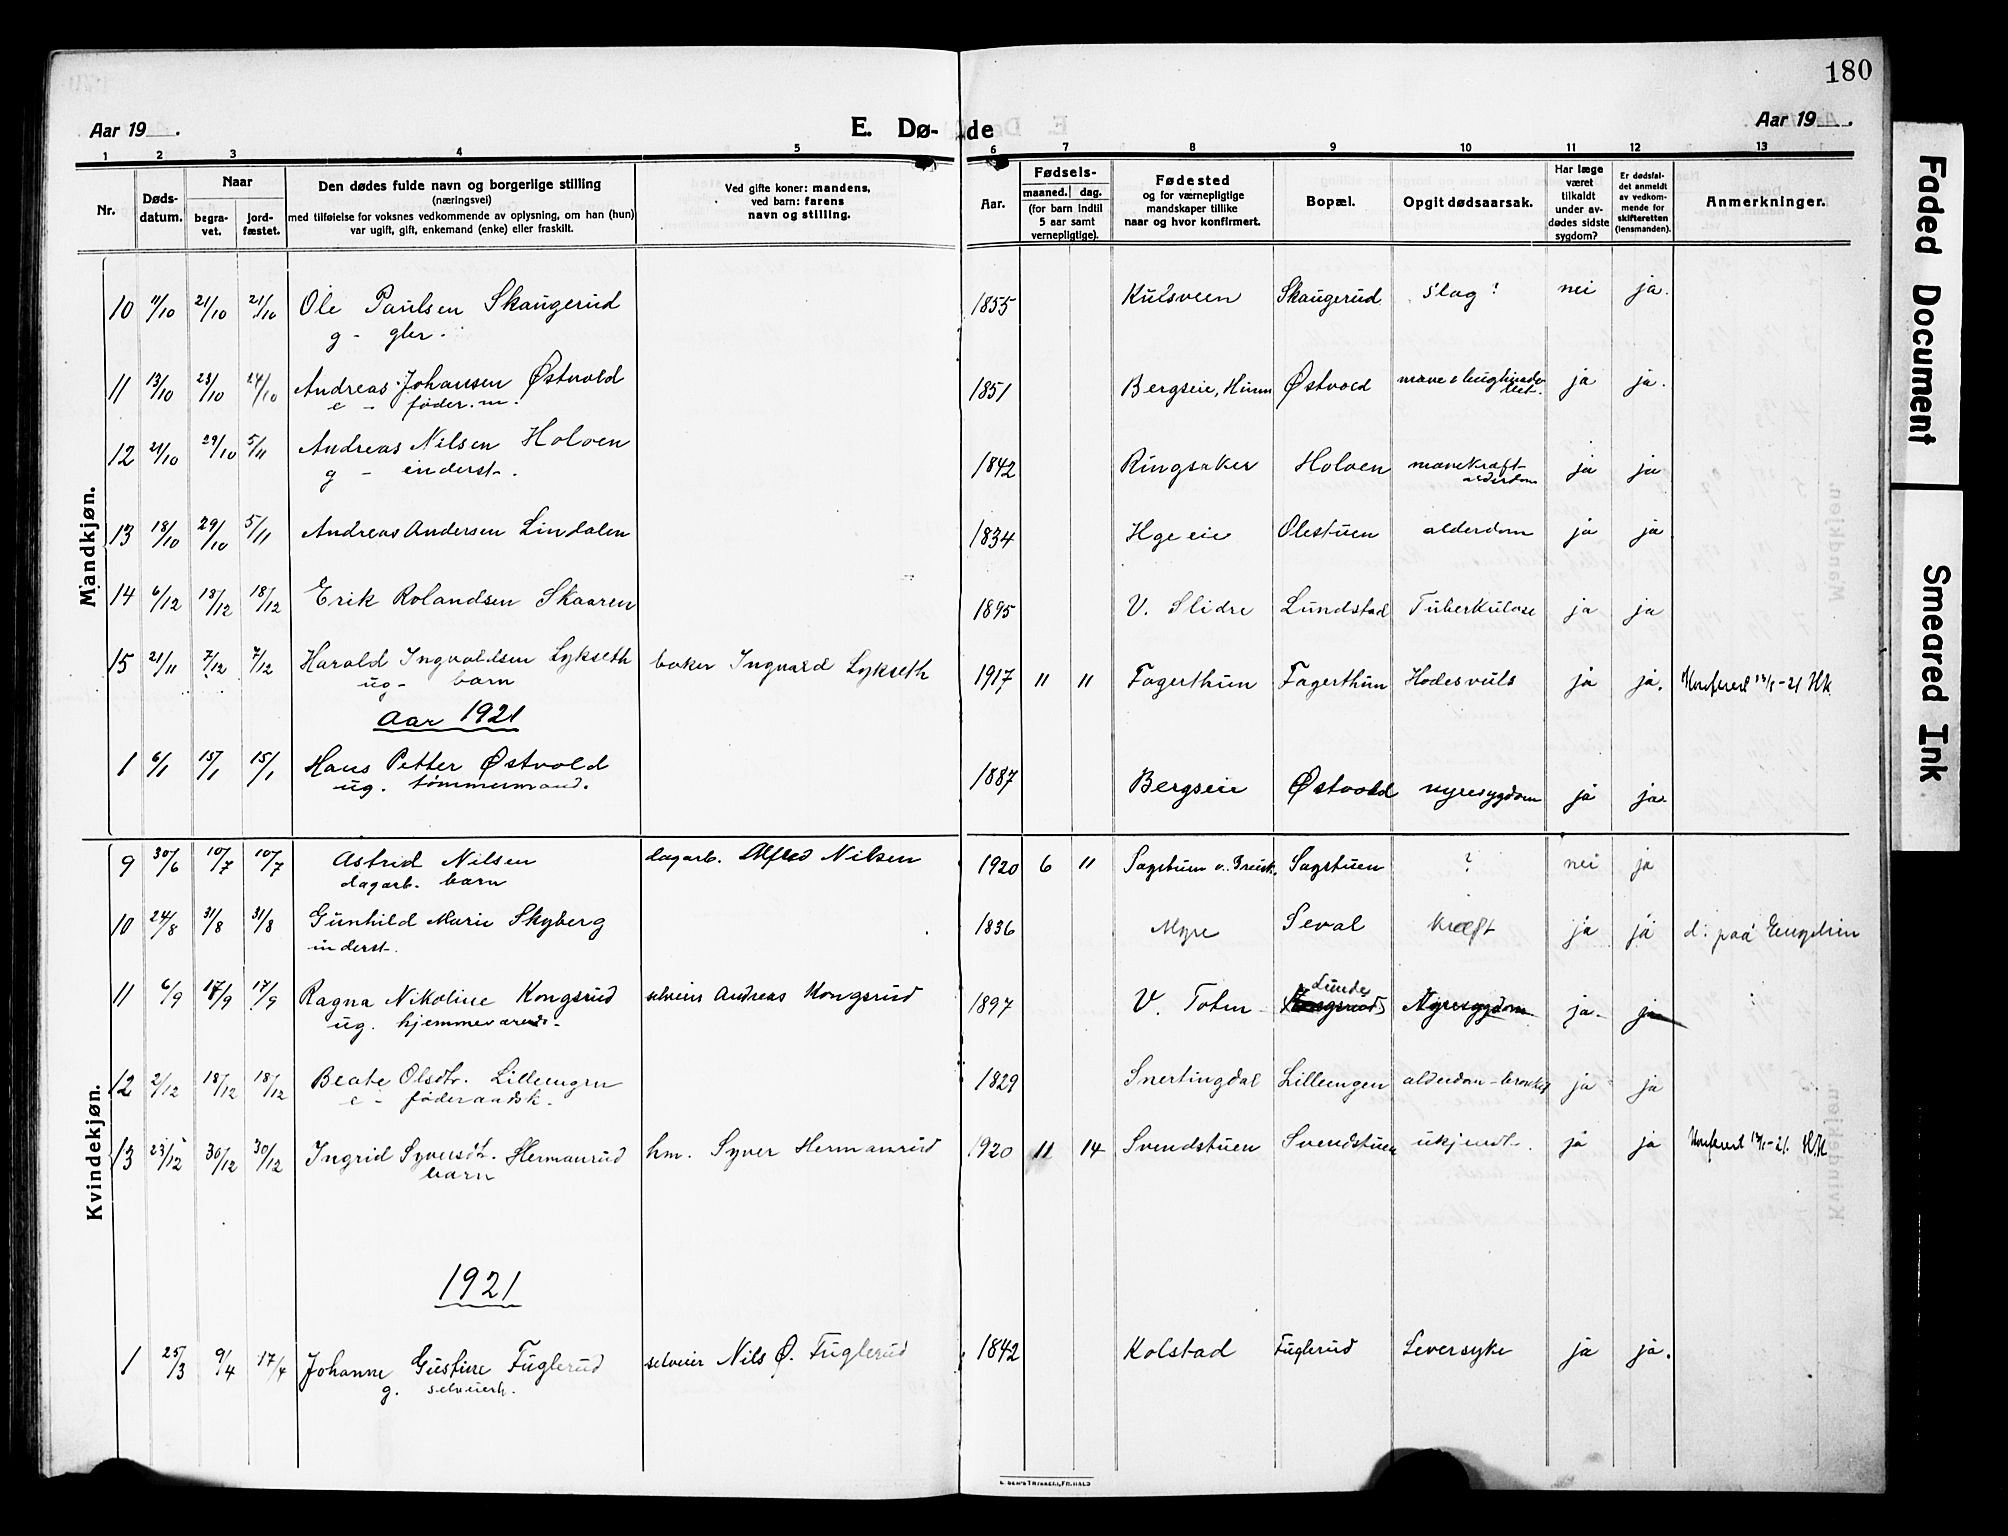 180
Aar 19 .
E. Dø-
de
Aar 19 .
1 2 3 4 5 6 7 8 9 10 11 12 13
Nr.
Døds-
datum.
Naar
begra-
vet.
jord-
fæstet.
Den dødes fulde navn og borgerlige stilling
(næringsvei)
med tilføielse for voksnes vedkommende av oplysning, om han (hun)
var ugift, gift, enkemand (enke) eller fraskilt.
Ved gifte koner: mandens,
ved barn: farens
navn og stilling.
Aar.
Fødsels-
maaned. dag.
(for barn indtil
5 aar samt
vernepligtige).
Fødested
og for værnepligtige
mandskaper tillike
naar og hvor konfirmert.
Bopæl.
Opgit dødsaarsak.
Har læge
været
tilkaldt
under av-
dødes sidste
sygdom?
Er dødsfal-
det anmeldt
av vedkom-
mende for
skifteretten
(lensmanden).
Anmerkninger.
Mandkjøn.
10 11/10 21/10 21/10 Ole Paulsen Skaugerud 1855 Kulsveen Skaugerud slag? nei ja.
g - gbr.
11 13/10 23/10 24/10 Andreas Johansen Østvold 1851 Bergseie, Hunn Østvold ja ja.
e - føder.m.
12 21/10 29/10 5/11 Andreas Nilsen Holven 1842 Ringsaker Holven mavekræft ja ja
g - inderst. alderdom
13 18/10 29/10 5/11 Andreas Andersen Lindalen 1834 Olestuen alderdom ja ja
14 6/12 18/12 18/12 Erik Rolandsen Skaaren 1895 V. Slidre Lundstad Tuberkulose ja ja
15 21/11 7/12 7/12 Harald Ingvaldsen Lykseth baker Ingvald Lykseth 1917 11 11 Fagerthun Fagerthun ja ja.
ug - barn
Aar 1921
1 6/1 15/1 15/1 Hans Petter Østvold 1887 Bergseie Østvold nyresygdom ja ja
ug. tømmermand.
Kvindekjøn.
9 30/6 10/7 10/7 Astrid Nilsen dagarb. Alfred Nilsen 1920 6 11 Sagstuen ? nei ja
dagarb. barn
10 24/8 31/8 31/8 Gunhild Marie Skyberg 1836 Myre Seval kræft ja ja
inderst.
11 6/9 17/9 17/9 Ragna Nikoline Kongsrud selveier Andreas Kongsrud 1897 V. Toten Nyresygdom ja ja
ug. hjemmeværende
12 2/12 18/12 18/12 Beate Olsdtr. Lilleengen 1829 Snertingdal Lilleengen ja ja
e - føderaadsk.
13 23/12 30/12 30/12 Ingrid Syversdt. Hermanrud hm. Syver Hermanrud 1920 11 14 Svendstuen Svendstuen ukjendt. ja ja
barn
1921
1 25/3 9/4 17/4 Johanne Gustine Fuglerud selveier Nils Ø. Fuglerud 1842 Kolstad Fuglerud Leversyke ja ja.
g. selveierk.
Faded Document
Smeared Ink